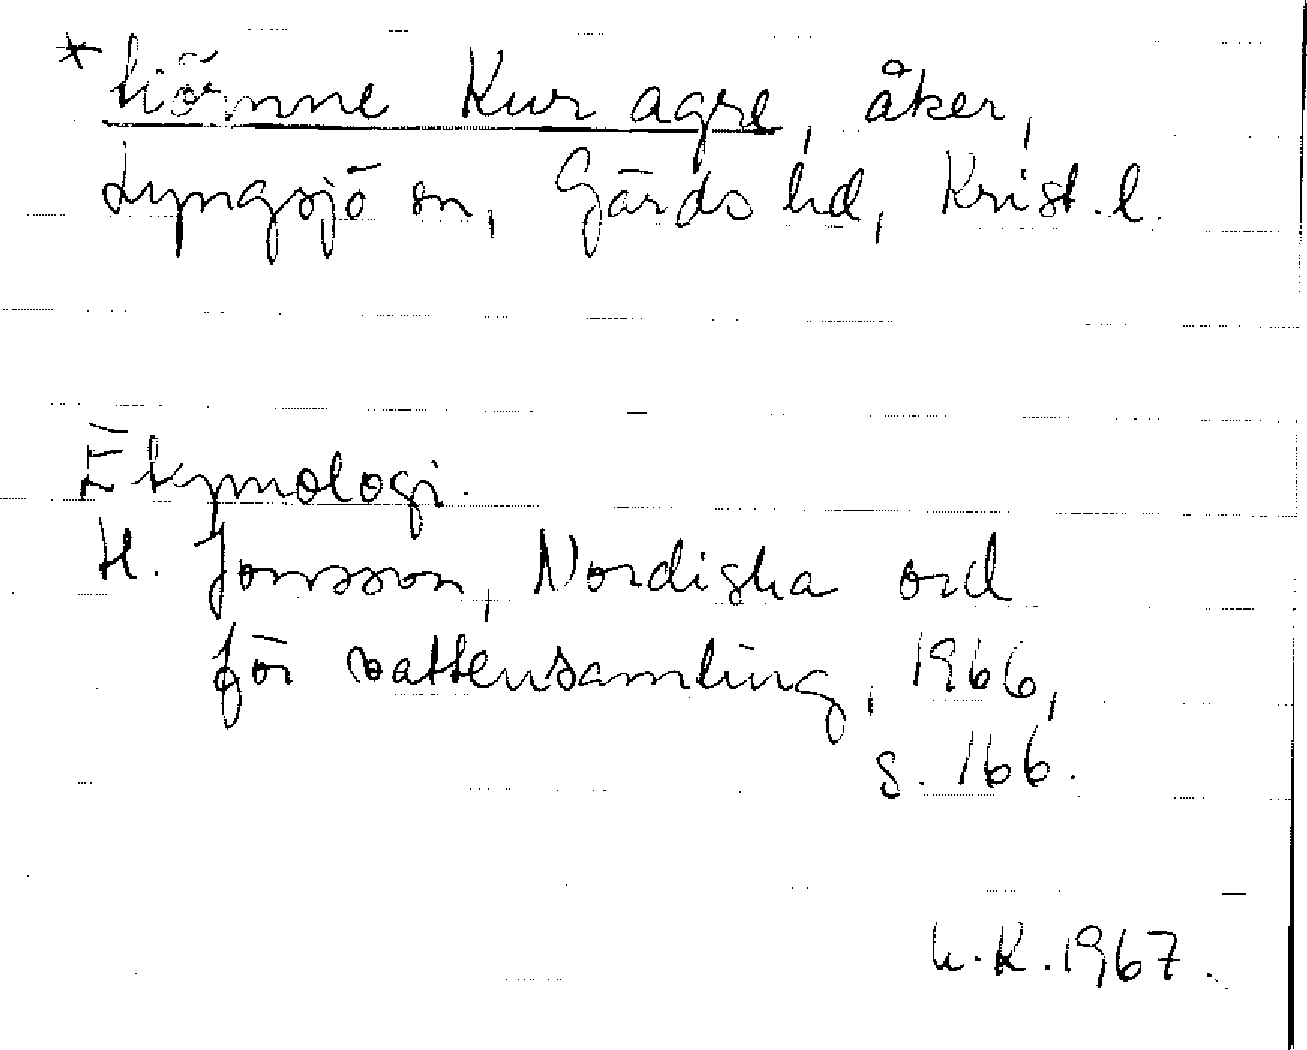 *hiörnne Kur agre, åker,
Lyngsjö sn, Gärds hd, Krist. l.
Etymologi.
H. Jonsson, Nordiska ord
för vattensamling, 1966,
s. 166.
L.K. 1967.